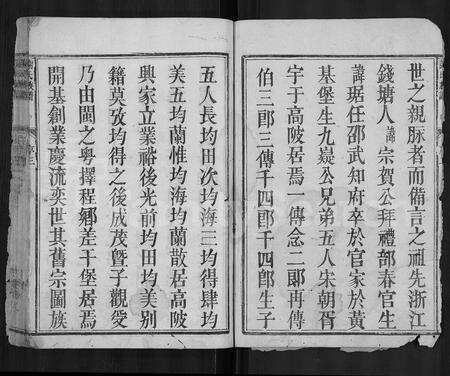 世之親脉者而備言之祖先浙江
錢塘人諱宗賀公拜禮部春官生
諱琚任邵武知府卒於官家於黃
基堡生九嶷公兄弟五人宋朝胥
宇于高陂居焉一傳念二郎再傳
伯三郎三傳千四郎千四郎生子
五人長均田次均海三均得肆均
美五均蘭惟均海均蘭散居高陂
興家立業裕後光前均田均美别
籍莫攷均得之後成茂曁子觀受
乃由閩之粤擇程鄉差干堡居焉
開基創業慶流奕世其舊宗圖族